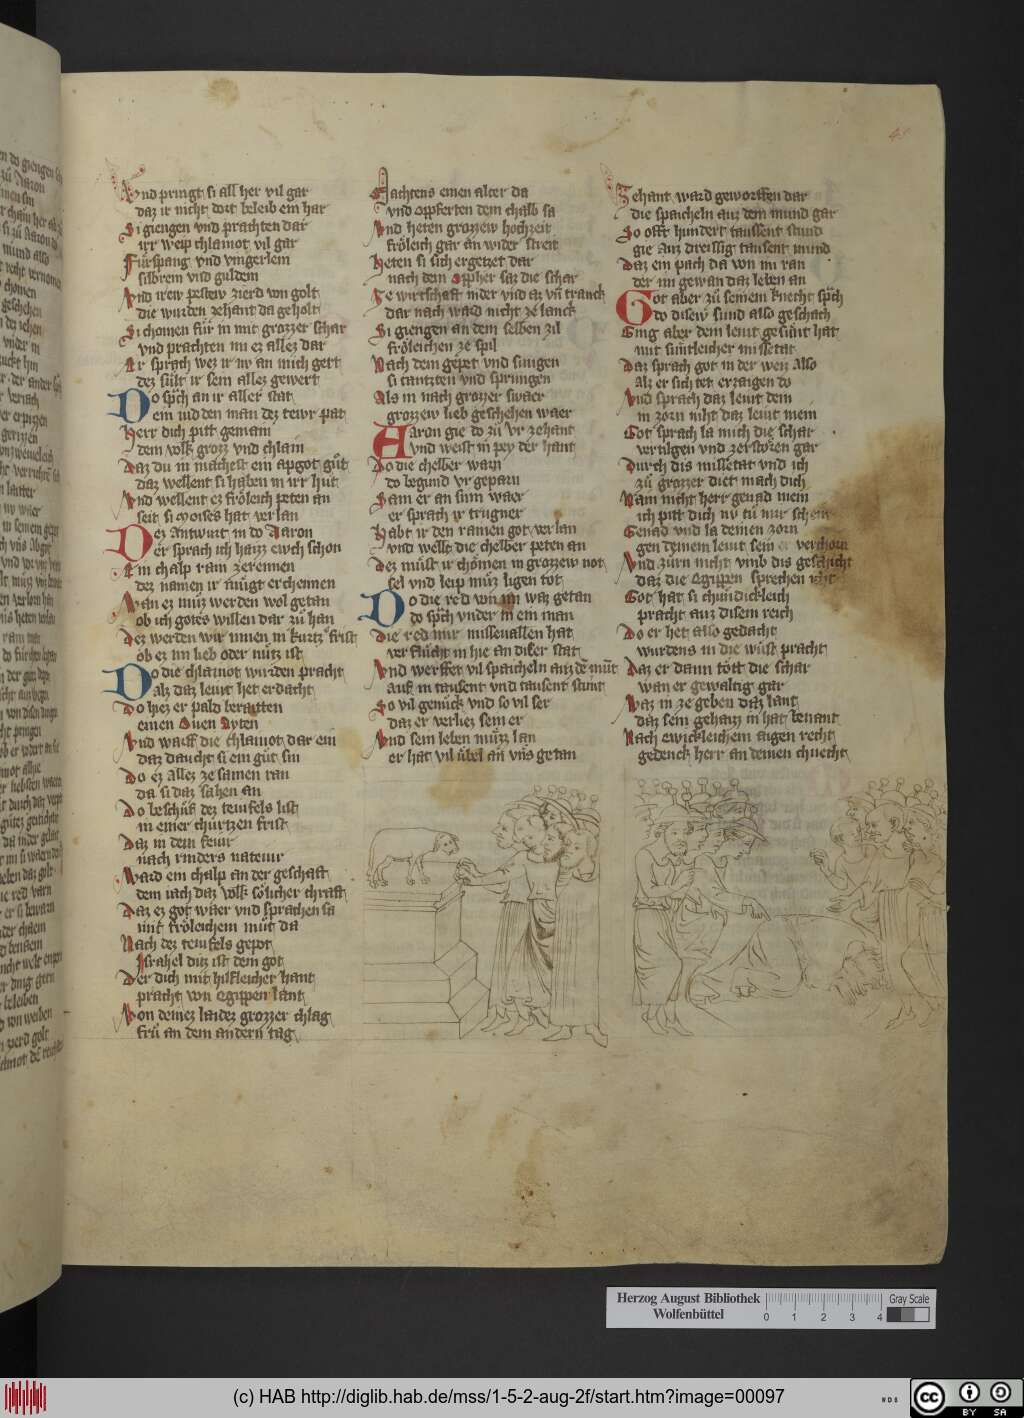 Vnd pringt si all her vil gar
daz ir nicht dort beleib ein har
Si giengen vnd prachten dar
irr weip chlainot vil gar
Fürspang vnd vingerlein
silbrein vnd guldein
Vnd irew pestew zierd von golt
die wurden zehant da geholt
Si chomen für in mit grozzer schar
vnd prachten im ez allez dar
Er sprach wez ir nv an mich gert
dez sült ir sein allez gewert
Do sp͛ch an ir aller stat
ein iud den man dez tewr pat
Herr dich pitt gemain
dem volk grozz vnd chlain
Daz du in machest ein apgot gůt
daz wellent si haben in irr hůt
Vnd wellent ez frôleich peten an
seit si Moises hat verlan
Dez Antwurt in do Aaron
er sprach ich haizz ewch schon
Ein chalp rain zerennen
dez namen ir mügt erchennen
Wan ez můz werden wol getan
ob ich gotes willen dar zů han
Dez werden wir innen in kurtz frist
ob ez im lieb oder nütz ist
Do die chlainot wurden pracht
alz daz lewt het erdacht
Do hiez er pald beraitten
einen Ouen Ayten
Vnd warff die chlainot dar ein
daz daucht si ein gůt sin
Do ez allez ze samen ran
da si daz sahen an
Do beschůf dez teufels list
in einer churtzen frist
Daz in dem feur
nach rinders nateuir
Ward ein chalp an der geschaft
dem iach daz volk sölicher chraft
Daz ez got wäer vnd sprachen sa
mit fröleichem můt da
Nach dez teufels gepot
Israhel ditz ist dein got
Der dich mit hilfleicher hant
pracht von Egippen lant
Von deinez laidez grozzer chlag
frů an dem andern tag
Machtens einen alter da
vnd oppferten dem chalb sa
Vnd heten grozzew hochzeit
fröleich gar an wider streit
Heten si sich ergetzet dar
nach dem opher saz die schar
Ze wirtschaft inder vnd az vñ tranck
dar nach ward nicht ze lanck
Si giengen an dem selben zil
fröleichen ze spil
Nach dem gepet vnd singen
si tantzten vnd springen
Als in nach grozzer swaer
grozzew lieb geschehen waer
Aaron gie do zů Vr zehant
vnd weist in pey der hant
Do die chelber warn
do begund vr geparn
Sam er an sinn wäer
er sprach ir trugner
Habt ir den ramen got verlan
vnd wellt die chelber peten an
Dez můst ir chömen in grozzew not
sel vnd leip můz ligen tot
Do die red von im waz getan
do sp͛ch vnder in ein man
Die red mir missevallen hat
ver flůcht in hie an diser stat
Vnd werffet vil spaicheln auz dē můt
auf in tausent vnd tausent stunt
So vil genück vnd so vil ser
daz er verliez sein er
Vnd sein leben můzz lan
er hat vil übel an vns getan
Zehant ward geworffen dar
die spaicheln auz dem mund gar
So offt hundert taussent stund
gie auz dreissig tausent mund
Daz ein pach da von im ran
der im gewan daz leben an
Got aber zů seinem knecht sp͛ch
do disew sund also geschach
Ging aber dem lewt gesůnt hat
mit süntleicher missetat
Daz sprach got in der weiz also
alz er sich tet erzaigen do
Vnd sprach daz lewt dein
in zorn niht daz lewt mein
Got sprach la mich die schar
vertilgen vnd zerstoren gar
Durch dis missetat vnd ich
zů grozzer diet mach dich
Nain nicht herr genad mein
ich pitt dich nv tů mir schein
Genad vnd la deinen zorn
gen deinem lewt sein verchorn
Vnd zürn nicht vmb dis geschicht
daz die Egippen sprechen icht
Got hat si chündickleich
pracht auz disem reich
Do er het also gedacht
wurdens in die wůst pracht
Daz er dann tött die schar
wan er gewaltig gar
Waz in ze geben daz lant
daz sein gehaizz in hat benant
Nach ewickleichem aigen recht
gedenck herr an deinen chnecht
Herzog August Bibliothek
Wolfenbüttel
0 1 2 3 4
Gray Scale
(c) HAB http://diglib.hab.de/mss/1-5-2-aug-2f/start.htm?image=00097
WDB
CC BY SA